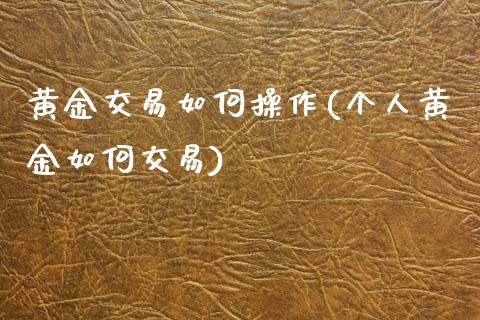 黄金交易如何操作(个人黄
金如何交易)